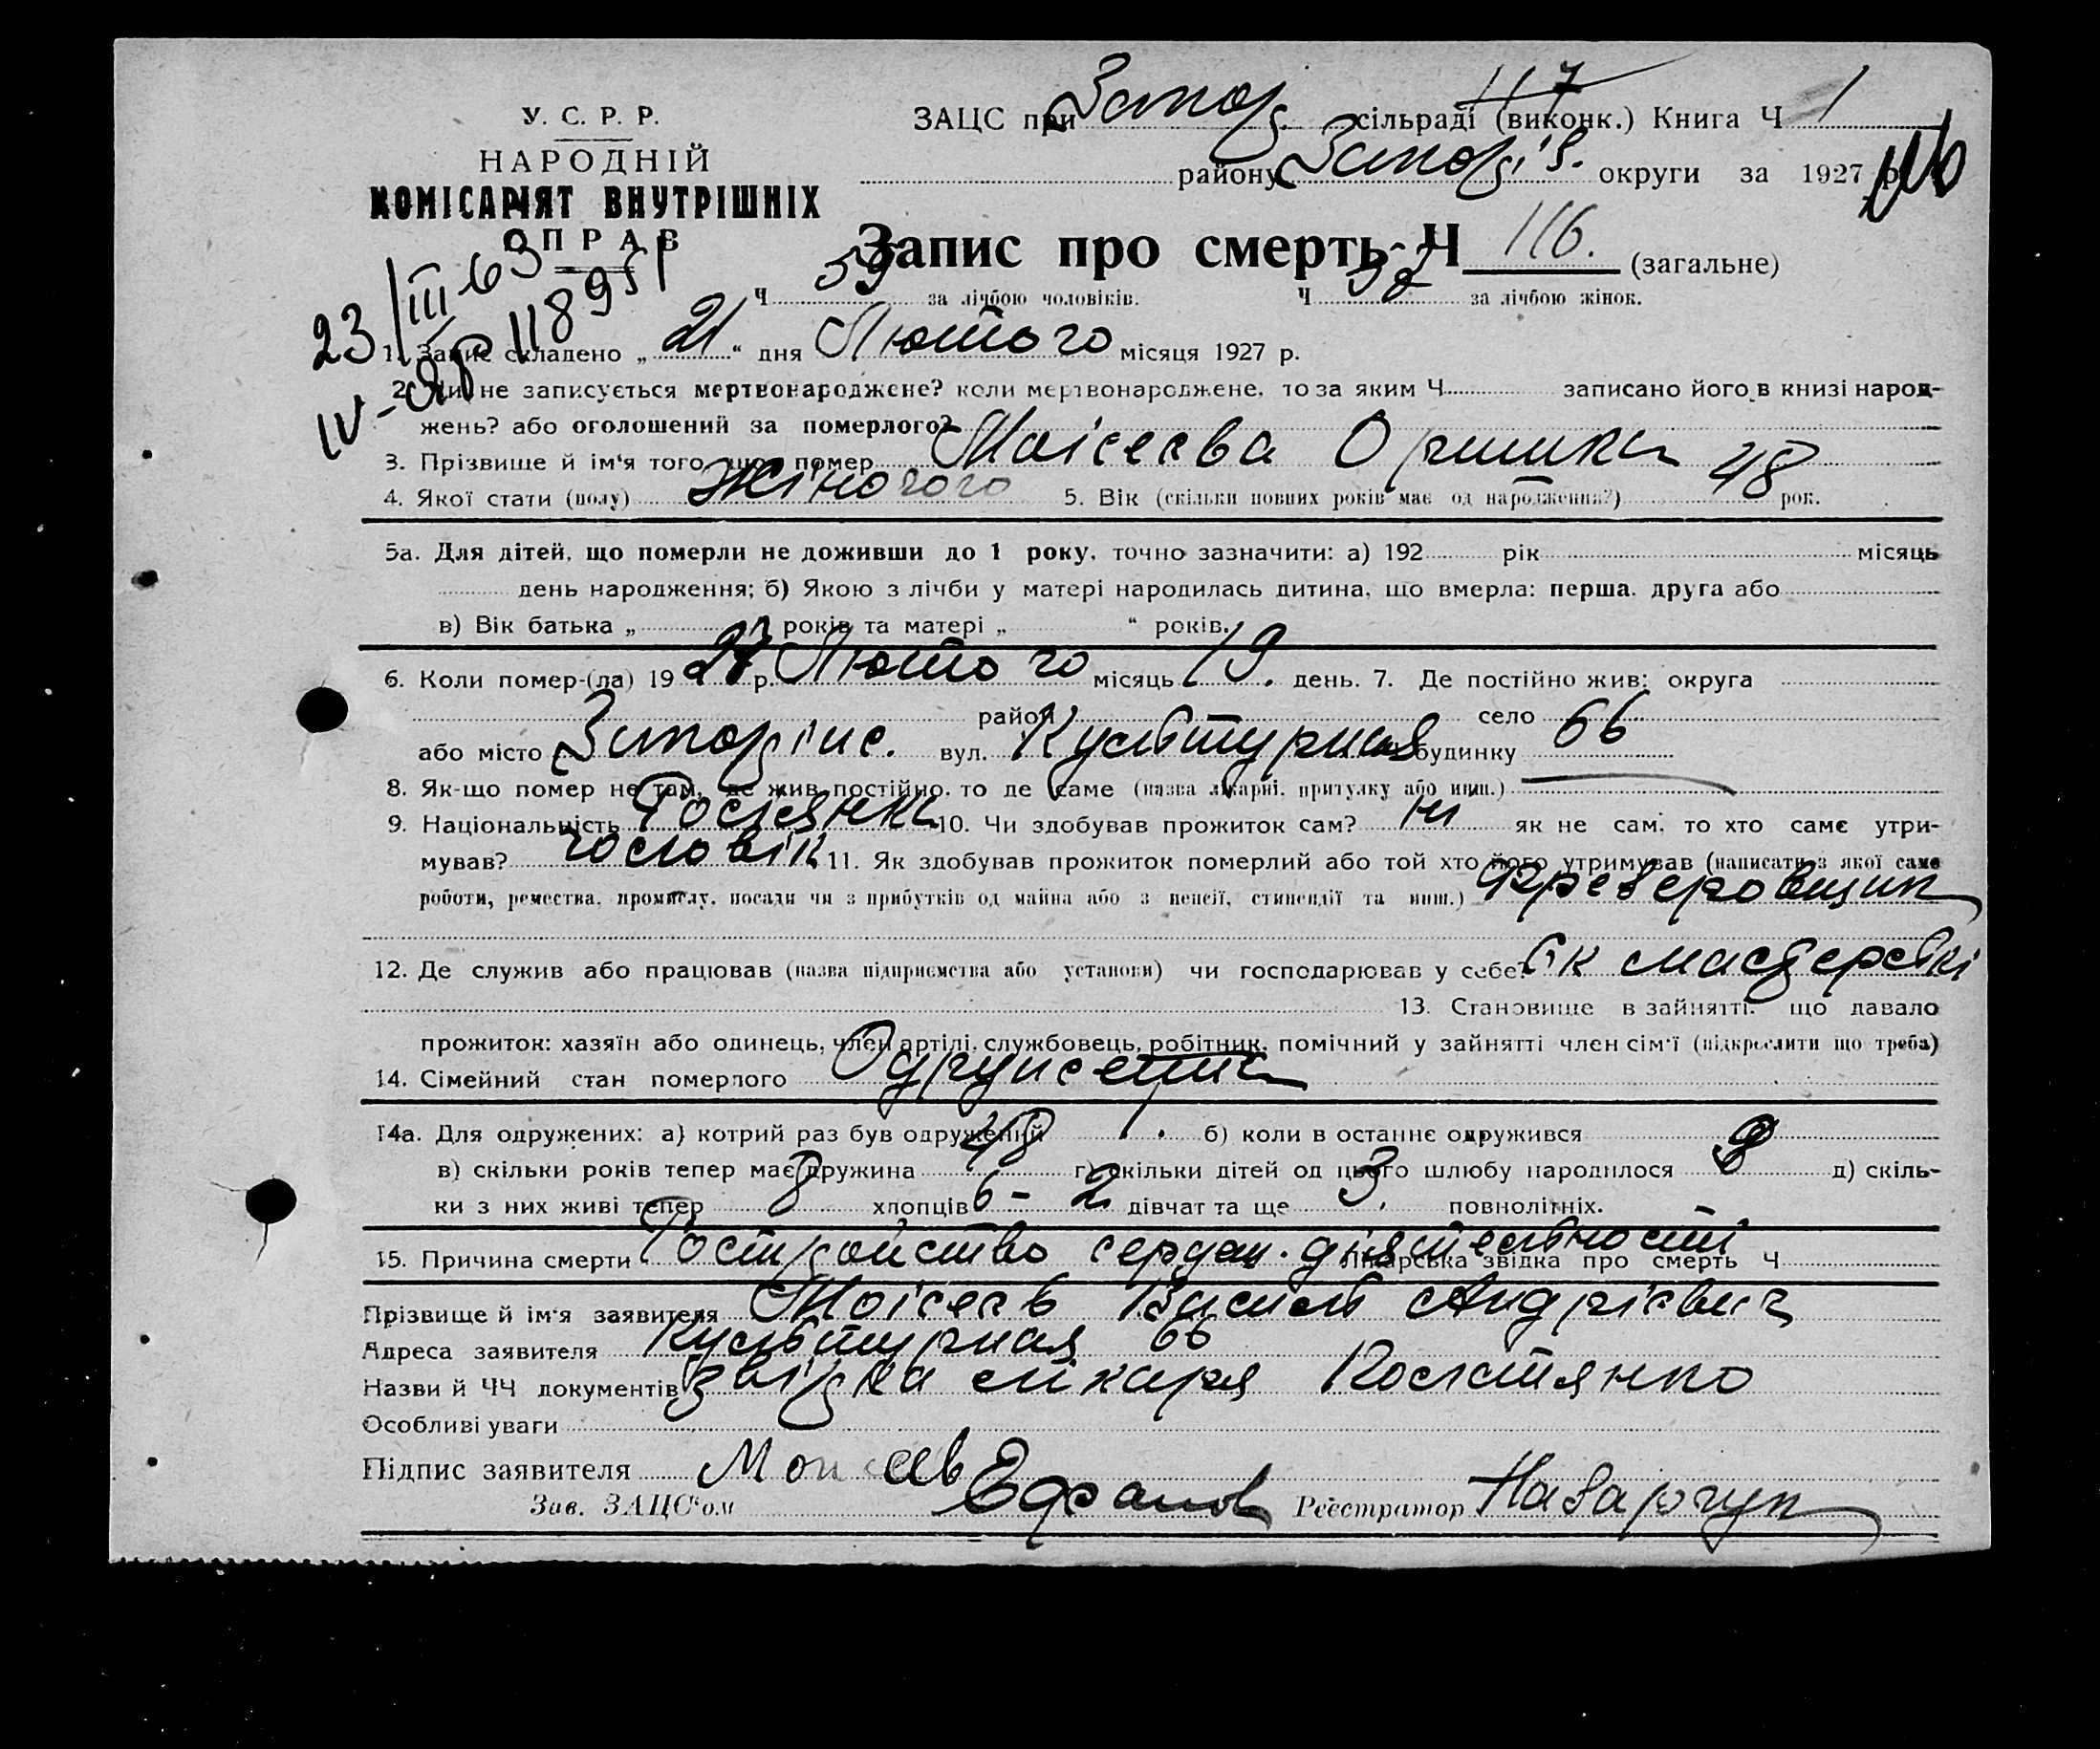 У. С. Р. Р.
НАРОДНІЙ
КОМІСАРІЯТ ВНУТРІШНІХ
СПРАВ
ЗАЦС при Запор сільраді (виконк.) Книга Ч 1
117
району Запоріз. округи за 1927 р.
116
Запис про смерть Ч 116. (загальне)
Ч 59 за лічбою чоловіків. Ч 57 за лічбою жінок.
23/III 63
118951
IV-ЯР
1. Запис складено „ 21 “ дня Лютого місяця 1927 р.
2. Чи не записується мертвонароджене? коли мертвонароджене, то за яким Ч записано його в книзі народ-
жень? або оголошений за померлого?
3. Прізвище й ім'я того, що помер Моісеєва Оришка
4. Якої стати (полу) Жіночого 5. Вік (скільки повних років має од народження?) 48 рок.
5а. Для дітей, що померли не доживши до 1 року, точно зазначити: а) 192 рік місяць
день народження; б) Якою з лічби у матері народилась дитина, що вмерла: перша, друга або
в) Вік батька „ років та матері „ “ років.
6. Коли помер-(ла) 19 27 р. Лютого місяць 19. день. 7. Де постійно жив: округа
район село
або місто Запоріже. вул. Культурная будинку 66
8. Як-що помер не там, де жив постійно, то де саме (назва лікарні, притулку або инш.)
9. Національність Росіянка 10. Чи здобував прожиток сам? ні як не сам, то хто саме утри-
мував? чоловік 11. Як здобував прожиток померлий або той хто його утримував (написати з якої саме
роботи, ремества, промислу, посади чи з прибутків од майна або з пенсії, стипендії та инш.) Фрезеровщик
12. Де служив або працював (назва підприємства або установи) чи господарював у себе? Ек мастерські
13. Становище в зайнятті, що давало
прожиток: хазяїн або одинець, член артілі, службовець, робітник, помічний у зайнятті член сім'ї (підкреслити що треба)
14. Сімейний стан померлого Одружена
14а. Для одружених: а) котрий раз був одружений 1. б) коли в останнє одружився
в) скільки років тепер має дружина 48 г) скільки дітей од цього шлюбу народилося 8 д) скіль-
ки з них живі тепер 8 хлопців 6 - 2 дівчат та ще 3. повнолітніх.
15. Причина смерти Росстройство сердеч. діятельності Лікарська звідка про смерть Ч
Прізвище й ім'я заявителя Моісеєв Василь Андрієвич
Адреса заявителя Культурная 66
Назви й ЧЧ документів звідка лікаря
Особливі уваги
Підпис заявителя Моисеев
Зав. ЗАЦС'ом Реєстратор Назарчук